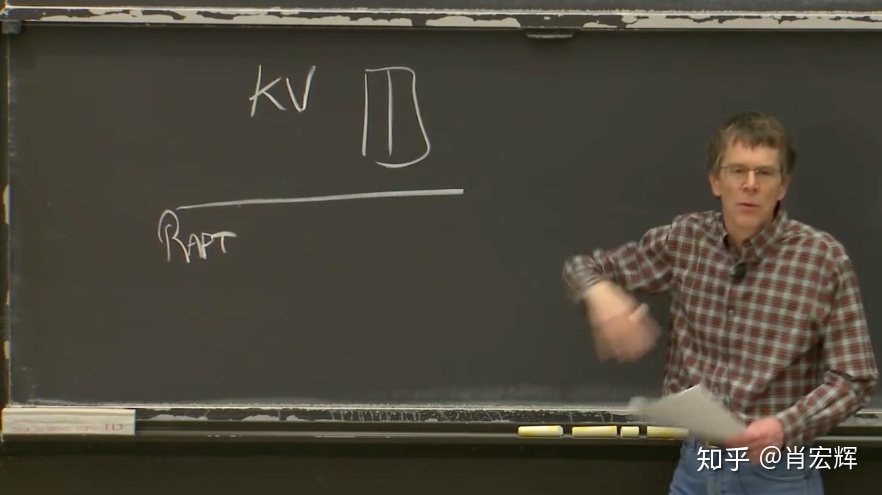 KV
RAPT
知乎 @肖宏辉